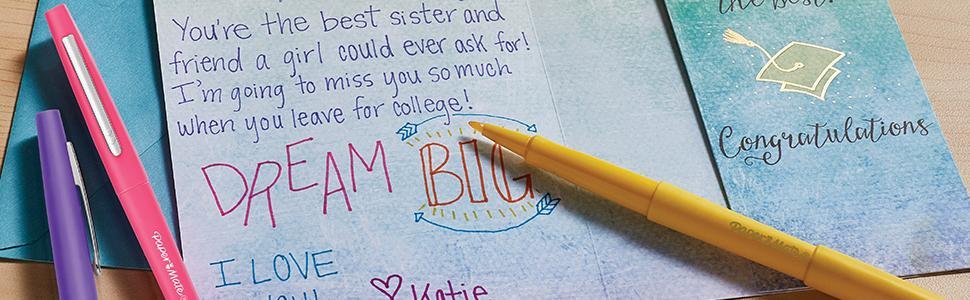 You're the best sister and
friend a girl could ever ask for!
I'm going to miss you so much
when you leave for college!
DREAM BIG
I LOVE
you!
♡ Katie
the best!
Congratulations
Paper Mate
Paper Mate